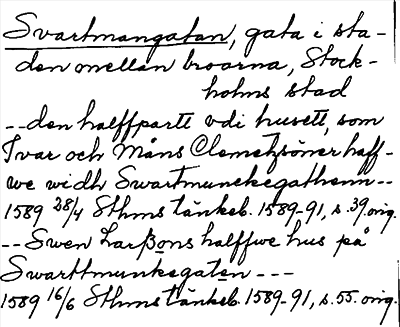 Svartmangatan, gata i sta-
den mellan broarna, Stock-
holms stad
-- den halffpartt vdi husett, som
Ivar och Måns Clemetzsöner haff-
we widh Swartmunckegathenn --
1589 28/4 Sthms tänkeb. 1589-91, s. 39 orig.
-- Swen Larßons halffwe hus på
Swarttmunkegaten ---
1589 16/6 Sthms tänkeb. 1589-91, s. 55. orig.